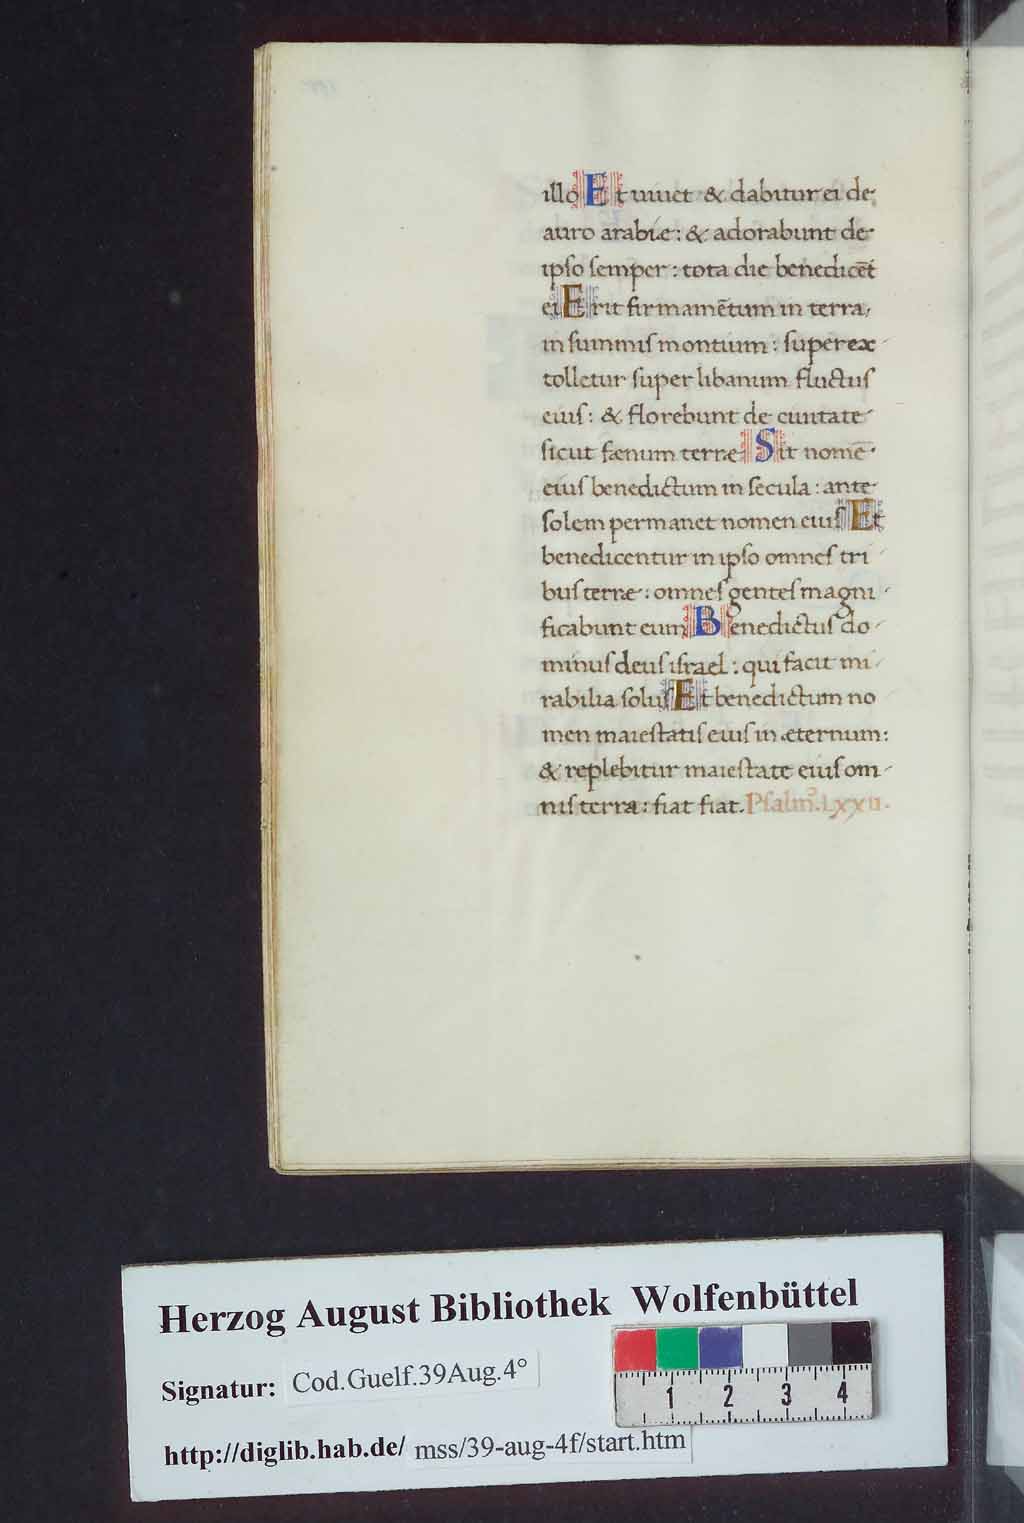 illo Et uiuet & dabitur ei de
auro arabiæ: & adorabunt de
ipſo ſemper: tota die benedicēt
ei Erit firmamētum in terra,
in ſummiſ montium: ſuperex
tolletur ſuper libanum fluctuſ
eiuſ: & florebunt de ciuitate
ſicut fænum terræ Sit nomē
eiuſ benedictum in ſecula: ante
ſolem permanet nomen eiuſ Et
benedicentur in ipſo omneſ tri
buſ terræ: omneſ genteſ magni
ficabunt eum Benedictuſ do
minuſ deuſ iſrael: qui facit mi
rabilia ſoluſ Et benedictum no
men maieſtatiſ eiuſ in æternum:
& replebitur maieſtate eiuſ om
niſ terra: fiat fiat. Pſalm⁹. Lxxii.
Herzog August Bibliothek Wolfenbüttel
Signatur: Cod.Guelf.39Aug.4°
1 2 3 4
http://diglib.hab.de/ mss/39-aug-4f/start.htm